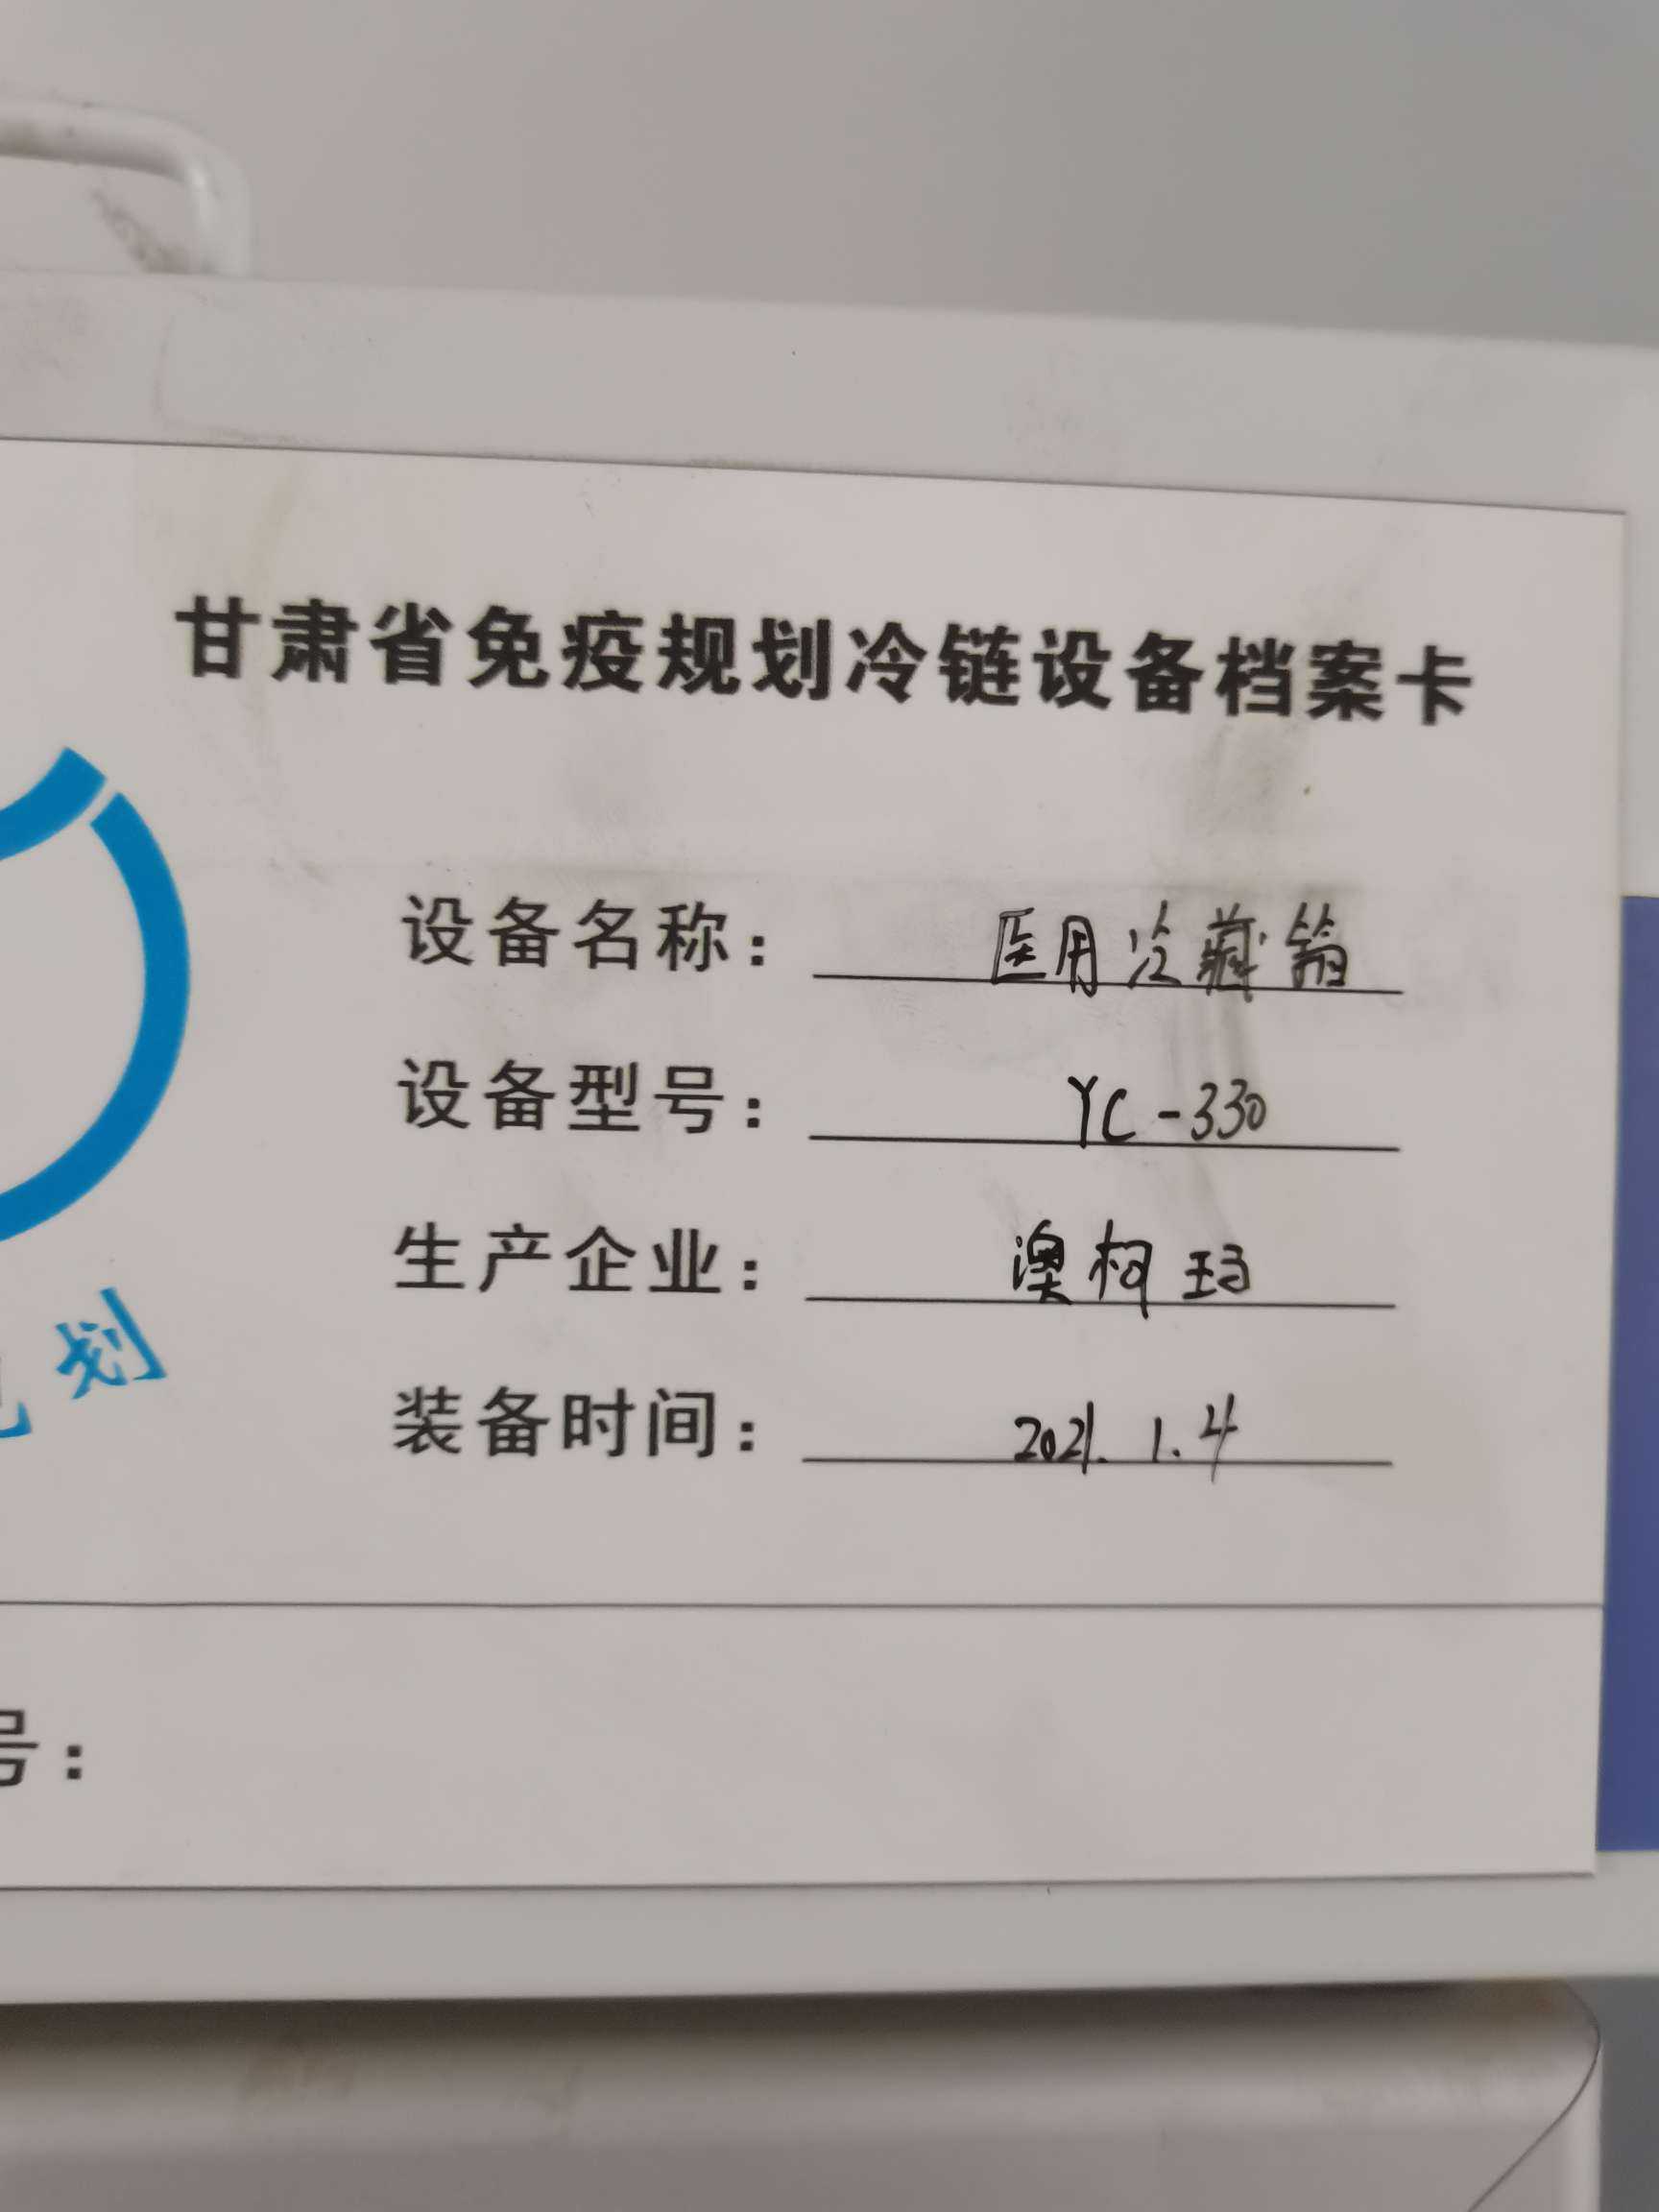 甘肃省免疫规划冷链设备档案卡
设备名称：医用冷藏箱
设备型号：YC-330
生产企业：澳柯玛
装备时间：2021.1.4
划
号：